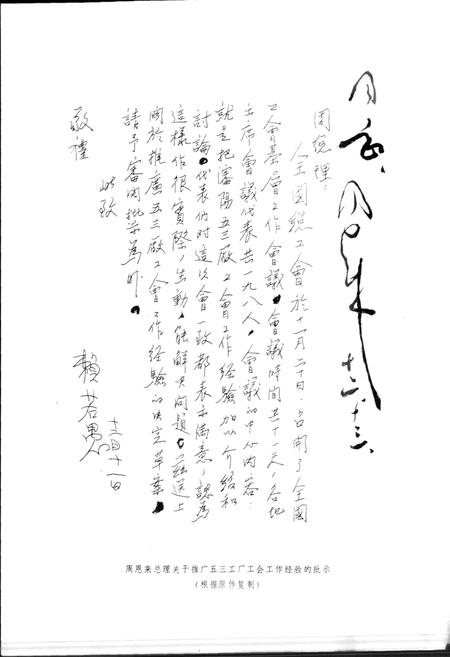 同意。周恩来
十二、十三、
周總理：
全國總工會於十一月二十日，召開了全國
工會基層工作會議。會議時間共十一天，各地
出席會議代表共一九八人，會議的中心内容：
就是把瀋陽五三廠工會工作經驗加以介紹和
討論。代表們對這次會一致都表示滿意，認為
這樣作很實際，生動，能解决問題。茲送上
関於推廣五三廠工會工作經驗的决定草案，
請予審閲批示為盼。
此致
敬禮
賴若愚
十二月十一日
周恩来总理关于推广五三工厂工会工作经验的批示
（根据原件复制）